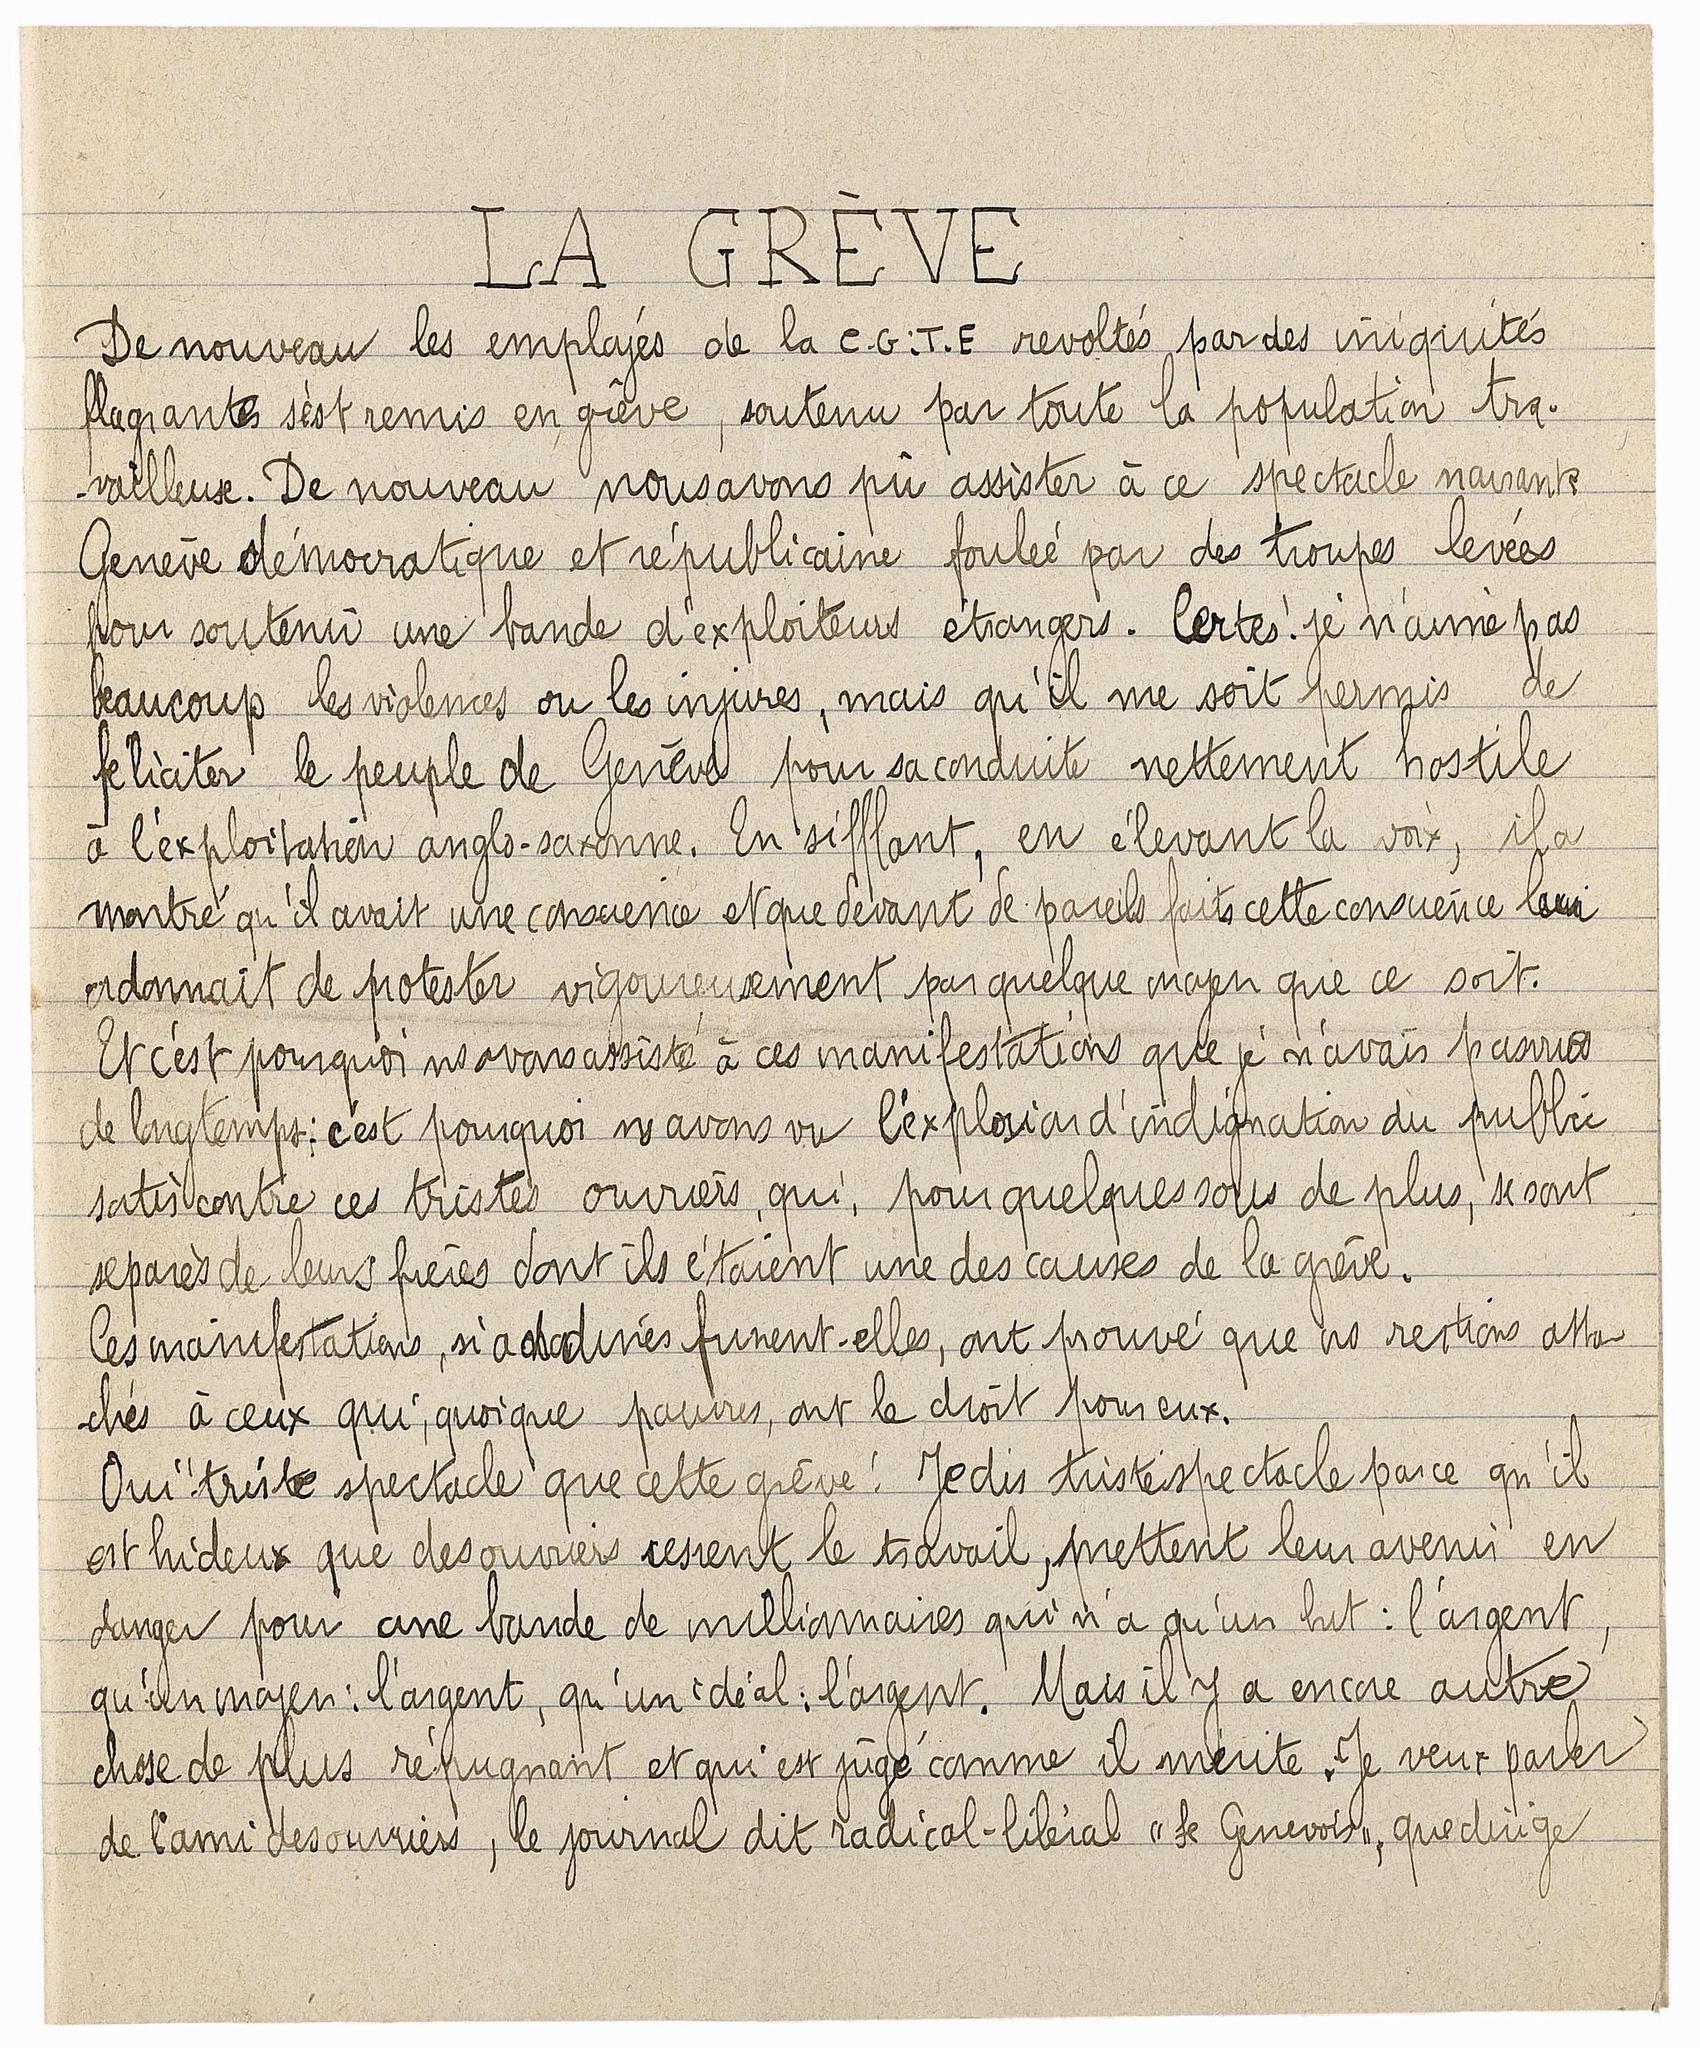 LA GRÈVE
De nouveau les employés de la C.G.T.E revoltés par des iniquités
flagrantes s'est remis en grêve, soutenu par toute la population tra-
-vailleuse. De nouveau nous avons pû assister à ce spectacle navrant:
Genève démocratique et républicaine foulée par des troupes levées
pour soutenir une bande d'exploiteurs étrangers. Certes! je n'aime pas
beaucoup les violences ou les injures, mais qu'il me soit permis de
féliciter le peuple de Genève pour sa conduite nettement hostile
à l'exploitation anglo-saxonne. En sifflant, en élevant la voix, il a
montré qu'il avait une conscience et que devant de pareils faits cette conscience lui
ordonnait de protester vigoureusement par quelque moyen que ce soit.
Et c'est pourquoi ns avons assisté à ces manifestations que je n'avais pas vues
de longtemps; c'est pourquoi ns avons vu l'explosion d'indignation du public
contre ces tristes ouvriers, qui, pour quelques sous de plus, se sont
separès de leurs frères dont ils étaient une des causes de la grève.
Ces manifestations, si anodines furent-elles, ont prouvé que ns restions atta-
-chés à ceux qui, quoique pauvres, ont le droit pour eux.
Oui! triste spectacle que cette grève! Je dis triste spectacle parce qu'il
est hideux que des ouvriers cessent le travail, mettent leur avenir en
danger pour une bande de millionnaires qui n'a qu'un but: l'argent,
qu'un moyen: l'argent, qu'un idéal: l'argent. Mais il y a encore autre
chose de plus répugnant et qui est jugé comme il mérite. Je veux parler
de l'ami des ouvriers, le journal dit radical-libéral "Le Genevois", que dirige